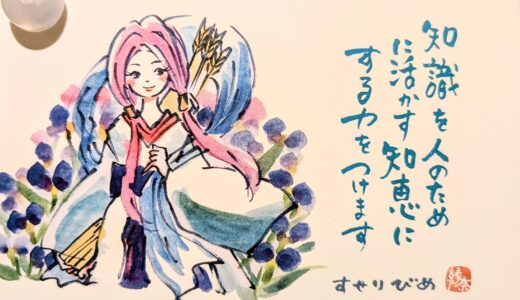 知識を人のため
に活かす知恵に
する力をつけます
すせりびめ